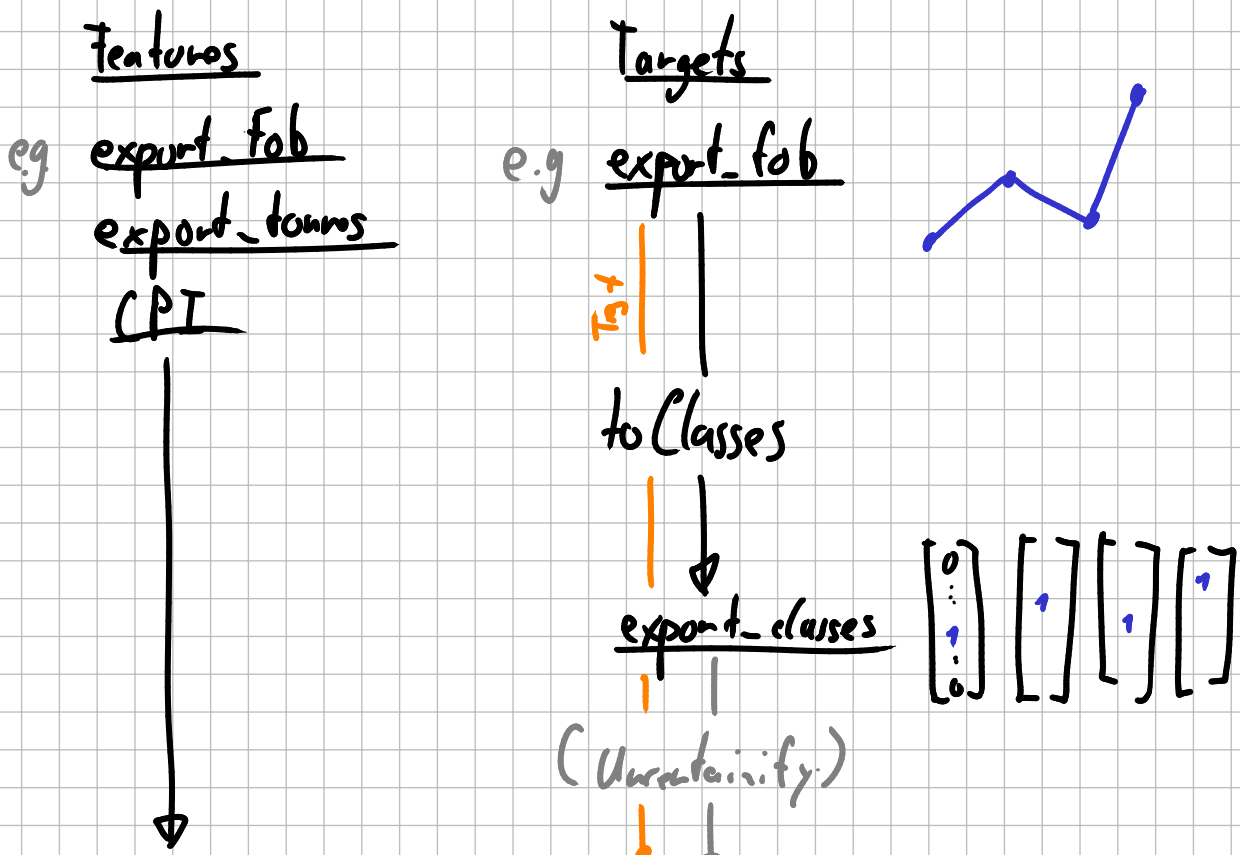 Features
e.g export_fob
export_tonnes
CPI
Targets
e.g export_fob
Tgt
toClasses
export_classes
(Uncertainify)
0
⋮
1
⋮
0
1
1
1